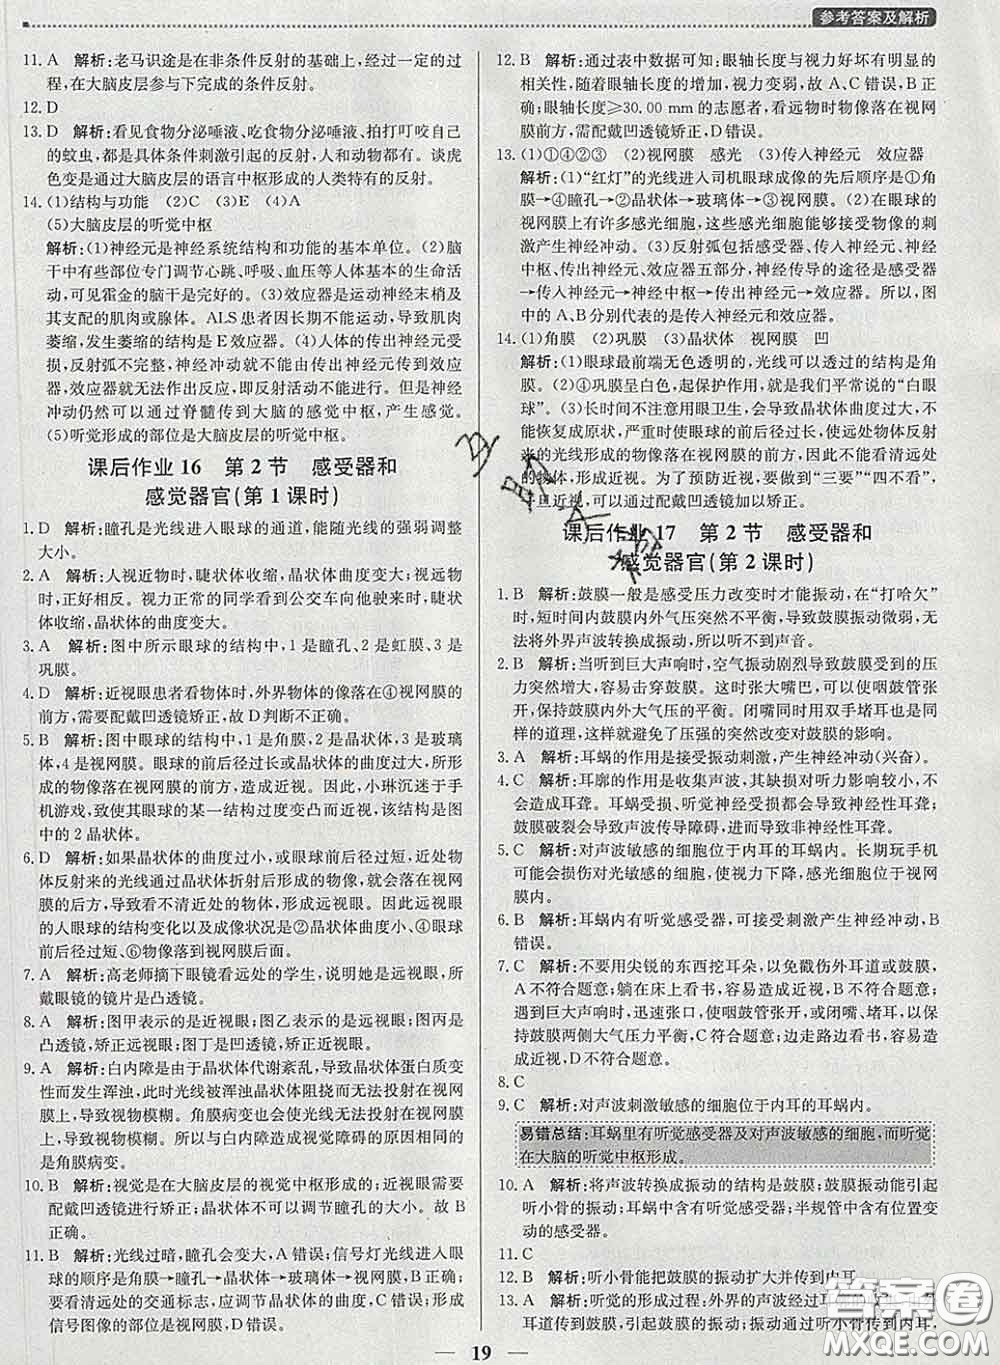 参考答案及解析
11. A　解析:老马识途是在非条件反射的基础上,经过一定的过
程,在大脑皮层参与下完成的条件反射。
12. D
13. D　解析:看见食物分泌唾液、吃食物分泌唾液、拍打叮咬自己
的蚊虫，都是具体条件刺激引起的反射,人和动物都有。谈虎
色变是通过大脑皮层的语言中枢形成的人类特有的反射。
14. (1)结构与功能　(2)C　(3)E　(4)A
(5)大脑皮层的听觉中枢
解析:(1)神经元是神经系统结构和功能的基本单位。(2)脑
干中有些部位专门调节心跳、呼吸、血压等人体基本的生命活
动,可见霍金的脑干是完好的。(3)效应器是运动神经末梢及
其支配的肌肉或腺体。ALS患者因长期不能运动,导致肌肉
萎缩,发生萎缩的结构是E效应器。(4)人体的传出神经元受
损,反射弧不完整,神经冲动就不能由传出神经元传到效应
器,效应器就无法作出反应,即反射活动不能进行。但是神经
冲动仍然可以通过脊髓传到大脑的感觉中枢,产生感觉。
(5)听觉形成的部位是大脑皮层的听觉中枢。
课后作业16　第2节　感受器和
感觉器官(第1课时)
1. D　解析:瞳孔是光线进入眼球的通道,能随光线的强弱调整
大小。
2. A　解析:人视近物时,睫状体收缩,晶状体曲度变大;视远物
时,正好相反。视力正常的同学看到公交车向他驶来时,睫状
体收缩,晶状体的曲度变大。
3. A　解析:图中所示眼球的结构中,1是瞳孔、2是虹膜、3是
巩膜。
4. D　解析:近视眼患者看物体时,外界物体的像落在④视网膜的
前方,需要配戴凹透镜矫正,故D判断不正确。
5. B　解析:图中眼球的结构中,1是角膜,2是晶状体,3是玻璃
体,4是视网膜。眼球的前后径过长或晶状体曲度过大,会导致
远处的物像落在视网膜的前方。因此,小琳沉迷于手
机游戏,致使其眼球的某一结构过度变凸而近视,该结构是图
中的2晶状体。
6. D　解析:如果晶状体的曲度过小,或眼球前后径过短,近处物
体反射来的光线通过晶状体折射后形成的物像,就会落在视网
膜的后方造成看不清近处的物体,形成远视眼。所以,远视眼
的人眼球的结构变化以及成像状况是②晶状体曲度小、④眼球
前后径过短、⑥物像落到视网膜后面。
7. A　解析:高老师摘下眼镜看远处的学生,说明她是远视眼,所
戴眼镜的镜片是凸透镜。
8. A　解析:图甲表示的是近视眼;图乙表示的是远视眼;图丙是
凸透镜,矫正远视眼;图丁的是凹透镜,矫正近视眼。
9. A　解析:白内障是由于晶状体代谢紊乱,导致晶状体蛋白质变
性而发生浑浊,此时光线被浑浊晶状体阻挠无法投射在视网
膜上,导致视物模糊。角膜病变也会使光线无法投射在视网膜
上,导致视物模糊。所以与白内障造成视觉障碍的原因相同的
是角膜病变。
10. B　解析:视觉是在大脑皮层的视觉中枢形成的;近视需要配
戴凹透镜进行矫正;晶状体不可以调节瞳孔的大小。故B
正确。
11. B　解析:光线过暗,瞳孔会变大,A错误;信号灯光线进入眼
球的顺序是角膜→瞳孔→晶状体→玻璃体→视网膜,B正确;
看清由远及近的交通标志,应调节晶状体的曲度,C错误;形成
信号图像的部位是视网膜,D错误。
12. B　解析:通过表中数据可知:眼轴长度与视力好坏有明显的
相关性,随着眼轴长度的增加,视力变弱,故A、C错误,B正
确;眼轴长度≥30.00 mm的志愿者,看远物时物像落在视网
膜前方,需配戴凹透镜矫正,D错误。
13. (1)①④②③　(2)视网膜　感光　(3)传入神经元　效应器
解析:(1)“红灯”的光线进入司机眼球成像的先后顺序是①角
膜→④瞳孔→②晶状体→玻璃体→③视网膜。(2)在眼球的
视网膜上有许多感光细胞,这些感光细胞能够接受物像的刺
激产生神经冲动。(3)反射弧包括感受器、传入神经元、神经
中枢、传出神经元、效应器五部分,神经传导的途径是感受器
→传入神经元→神经中枢→传出神经元→效应器。所以,图
中的A、B分别代表的是传入神经元和效应器。
14. (1)角膜　(2)巩膜　(3)晶状体　视网膜　凹
解析:(1)眼球最前端无色透明的,光线可以透过的结构是角
膜。(2)④巩膜呈白色,起保护作用,就是我们平常说的“白眼
球”。(3)长时间不注意用眼卫生,会导致晶状体曲度过大,不
能恢复成原状,严重的甚至会导致眼球的前后径过长,使物像
落在视网膜的前方,看不清远处的物体,形成近视。
因此,为了预防近视,要做到“三要”“四不看”,
一旦近视,可以通过配戴凹透镜加以矫正。
课后作业17　第2节　感受器和
感觉器官(第2课时)
1. B　解析:鼓膜一般是感受压力改变时才能振动,在“打哈欠”
时,短时间内鼓膜内外气压突然不平衡,导致鼓膜振动微弱,无
法将外界声波转换成振动,以致听不到声音。
2. B　解析:当听到巨大声响时,空气振动剧烈导致鼓膜受到的压
力突然增大,容易击穿鼓膜。这时张大嘴巴,可以使咽鼓管张
开,保持鼓膜内外大气压的平衡。闭嘴同时用双手堵耳也是同
样的道理,这样就避免了压强的突然改变对鼓膜的影响。
3. A　解析:耳蜗的作用是接受振动刺激,产生神经冲动(兴奋)。
4. C　解析:耳廓的作用是收集声波,其缺损对听力影响不大,不
会造成耳聋。耳蜗受损、听觉神经受损都会导致神经性耳聋;
鼓膜破裂会导致传导障碍,进而导致非神经性耳聋。
5. C　解析:对声波敏感的细胞位于内耳的耳蜗内。长期玩手机
可能会损伤对光敏感的细胞,使视力下降,感光细胞位于视网
膜内。
6. B　解析:耳蜗内有听觉感受器,可接受刺激产生神经冲动,B
错误。
7. C　解析:不要用尖锐的东西挖耳朵,以免戳伤外耳道或鼓膜,
A不符合题意;躺在床上看书,容易造成近视,B不符合题意;
遇到巨大声响时,迅速张口,使咽鼓管张开,或闭嘴、堵耳,以
保持鼓膜两侧大气压力平衡,C符合题意;边走路边读书,容易
造成近视,D不符合题意。
8. C
9. C　解析:对声波刺激敏感的细胞位于内耳的耳蜗内。
易错总结:耳蜗里有听觉感受器及对声波敏感的细胞,而听觉
在大脑的听觉中枢形成。
10. A　解析:将声波转换成振动的结构是鼓膜;鼓膜振动能引起
听小骨的振动;耳蜗中含有听觉感受器;半规管中含有位置变
动的感受器。
11. C
12. B　解析:听小骨能把鼓膜的振动扩大并传到内耳。
13. A　解析:听觉的形成过程:外界的声波经过
耳道传到鼓膜,引起鼓膜的振动;振动通过听小骨传到内耳,
19
答案圈
MXQE.COM